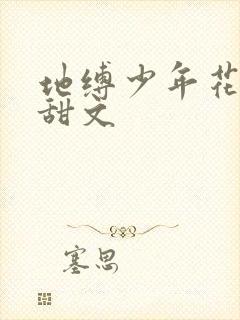 地缚少年花
甜文
塞思